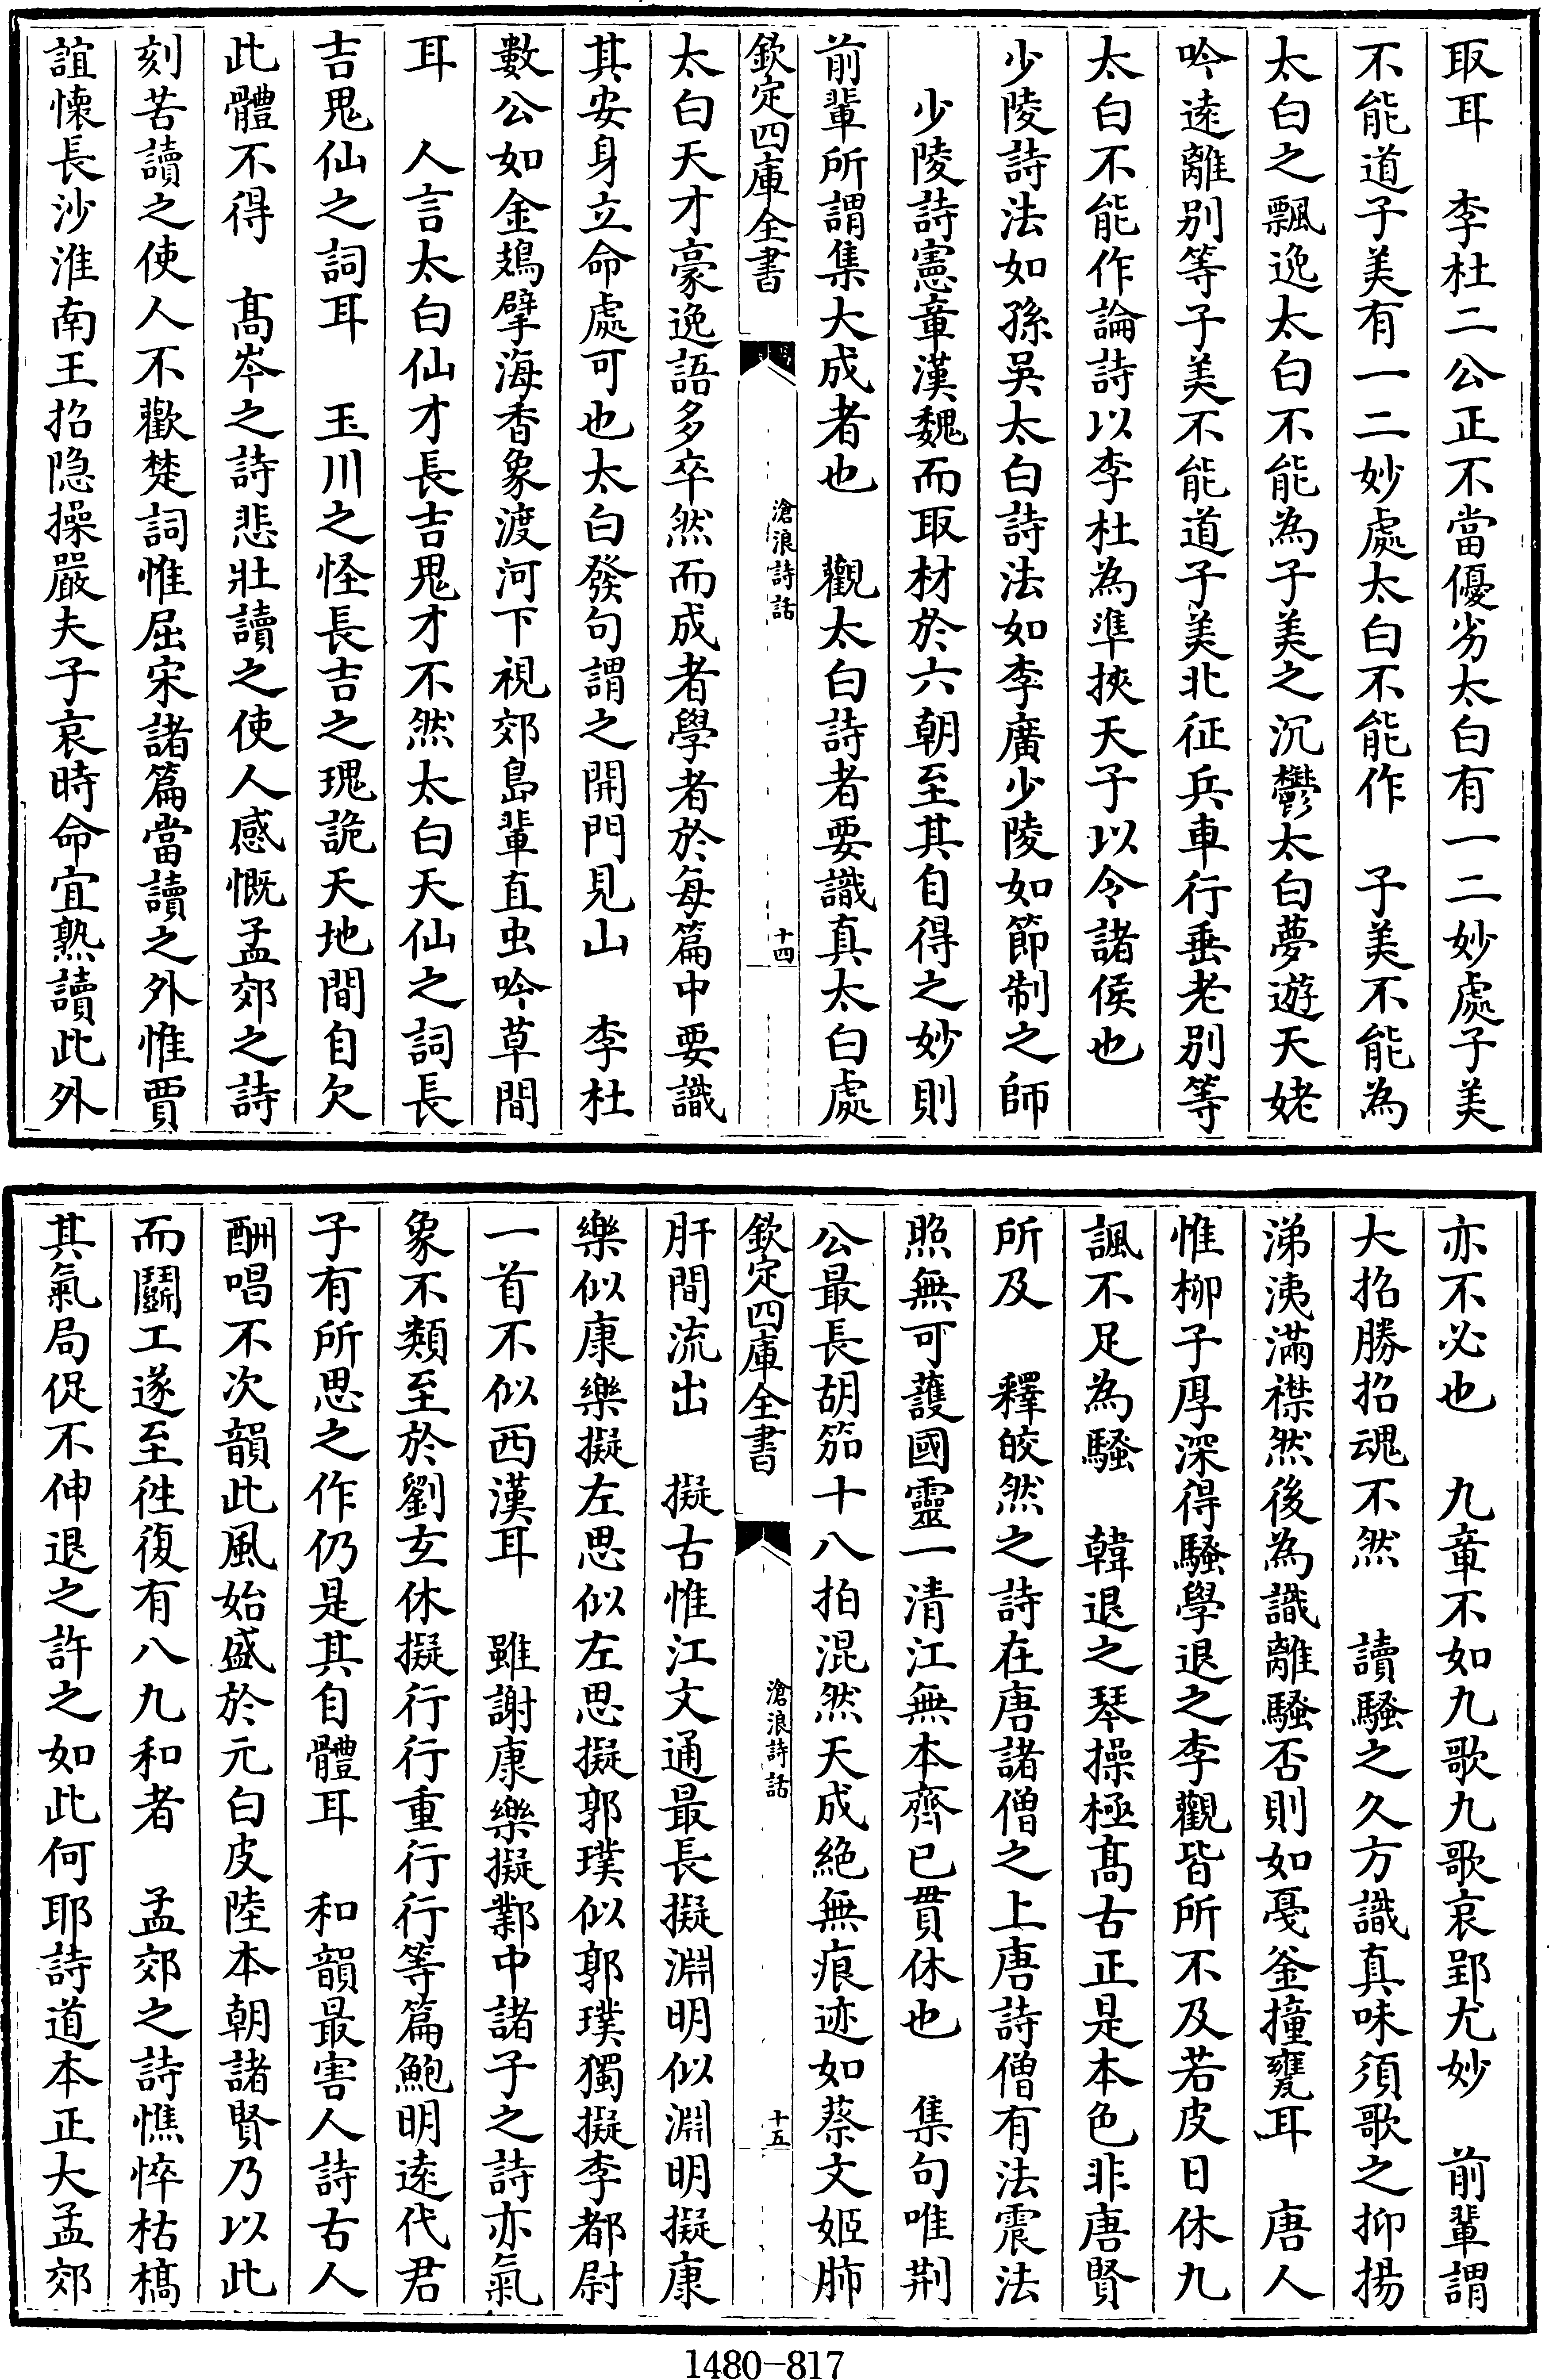 取耳　李杜二公正不當優劣太白有一二妙處子美
不能道子美有一二妙處太白不能作　子美不能為
太白之飄逸太白不能為子美之沉鬱太白夢遊天姥
吟遠離別等子美不能道子美北征兵車行垂老別等
太白不能作論詩以李杜為準挾天子以令諸侯也
少陵詩法如孫吳太白詩法如李廣少陵如節制之師
少陵詩憲章漢魏而取材於六朝至其自得之妙則
前輩所謂集大成者也　觀太白詩者要識真太白處
欽定四庫全書　滄浪詩話　十四
太白天才豪逸語多卒然而成者學者於每篇中要識
其安身立命處可也太白發句謂之開門見山　李杜
數公如金鳷擘海香象渡河下視郊島輩直虫吟草間
耳　人言太白仙才長吉鬼才不然太白天仙之詞長
吉鬼仙之詞耳　玉川之怪長吉之瑰詭天地間自欠
此體不得　髙岑之詩悲壯讀之使人感慨孟郊之詩
刻苦讀之使人不歡楚詞惟屈宋諸篇當讀之外惟賈
誼懐長沙淮南王招隐操嚴夫子哀時命宜熟讀此外
亦不必也　九章不如九歌九歌哀郢尤妙　前輩謂
大招勝招魂不然　讀騷之久方識真味須歌之抑揚
涕洟滿襟然後為識離騷否則如戞釜撞甕耳　唐人
惟柳子厚深得騷學退之李觀皆所不及若皮日休九
諷不足為騷　韓退之琴操極髙古正是本色非唐賢
所及　釋皎然之詩在唐諸僧之上唐詩僧有法震法
照無可護國靈一清江無本齊已貫休也　集句唯荆
公最長胡笳十八拍混然天成絶無痕迹如蔡文姬肺
欽定四庫全書　滄浪詩話　十五
肝間流出　擬古惟江文通最長擬淵明似淵明擬康
樂似康樂擬左思似左思擬郭璞似郭璞獨擬李都尉
一首不似西漢耳　雖謝康樂擬鄴中諸子之詩亦氣
象不類至於劉玄休擬行行重行行等篇鮑明遠代君
子有所思之作仍是其自體耳　和韻最害人詩古人
酬唱不次韻此風始盛於元白皮陸本朝諸賢乃以此
而鬭工遂至徃復有八九和者　孟郊之詩憔悴枯槁
其氣局促不伸退之許之如此何耶詩道本正大孟郊
1480-817